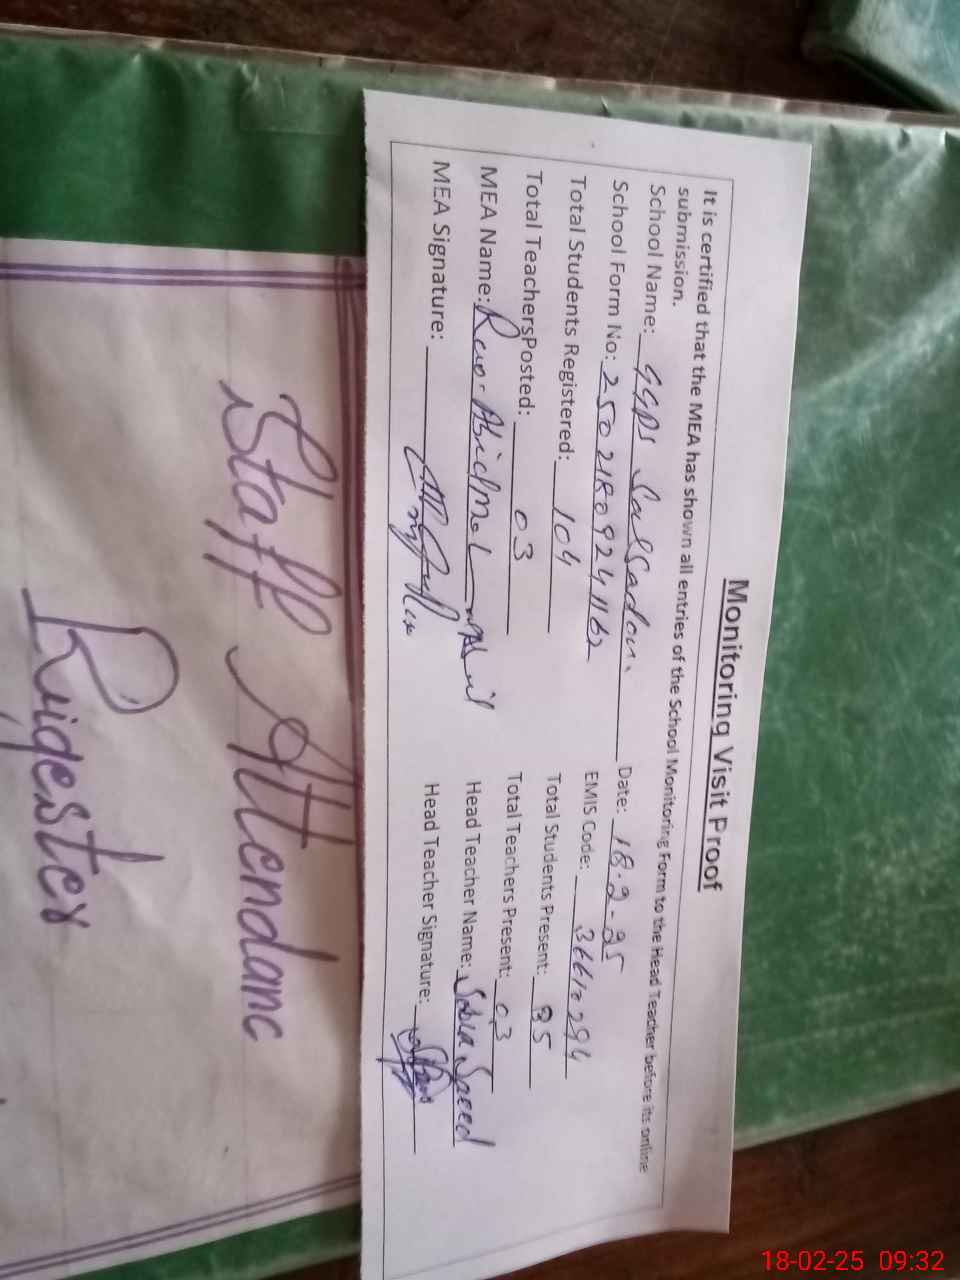 Monitoring Visit Proof
It is certified that the MEA has shown all entries of the School Monitoring Form to the Head Teacher before its online
submission.
School Name: GGPS Date: 18-2-25
School Form No: 250218092241162 EMIS Code: 36610294
Total Students Registered: 104 Total Students Present: 85
Total TeachersPosted: 03 Total Teachers Present: 03
MEA Name: Head Teacher Name: Sobia Saeed
MEA Signature: Head Teacher Signature:
Staff Attendanc
Ridester
18-02-25 09:32